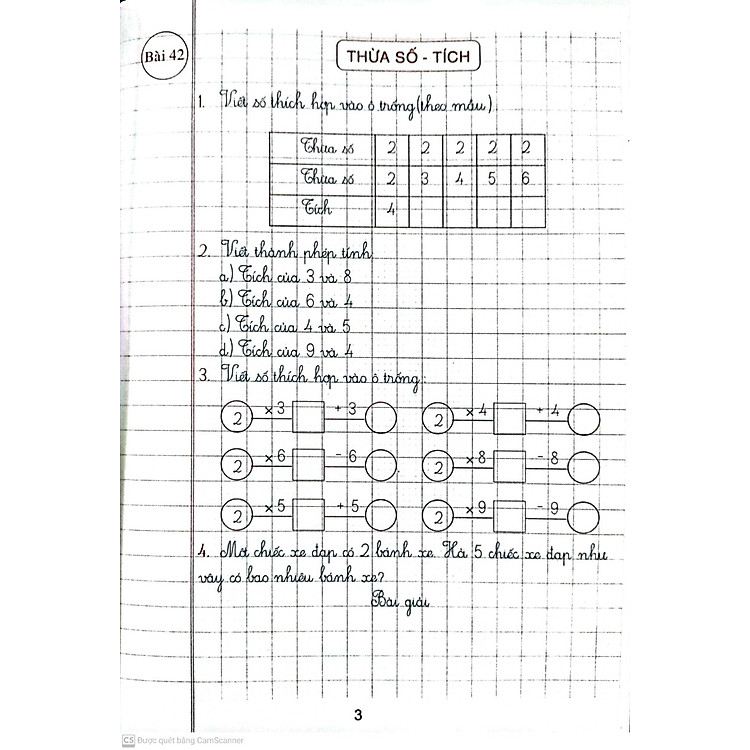 Bài 42
THỪA SỐ - TÍCH
1. Viết số thích hợp vào ô trống (theo mẫu)
Thừa số 2 2 2 2 2
Thừa số 2 3 4 5 6
Tích 4
2. Viết thành phép tính
a) Tích của 3 và 8
b) Tích của 6 và 4
c) Tích của 4 và 5
d) Tích của 9 và 4
3. Viết số thích hợp vào ô trống:
2 × 3 + 3 2 × 4 + 4
2 × 6 - 6 2 × 8 - 8
2 × 5 + 5 2 × 9 - 9
4. Mỗi chiếc xe đạp có 2 bánh xe. Hỏi 5 chiếc xe đạp như
vậy có bao nhiêu bánh xe?
Bài giải
3
CS Được quét bằng CamScanner